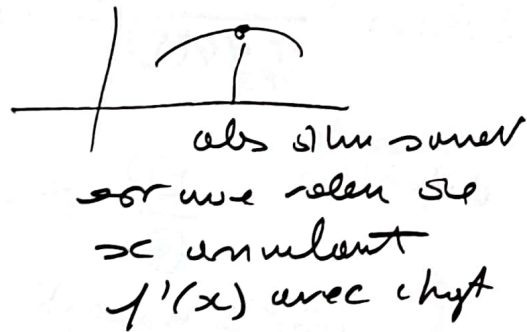 abs d'un sommet
est une valeur de
x annulant
f'(x) avec chgt